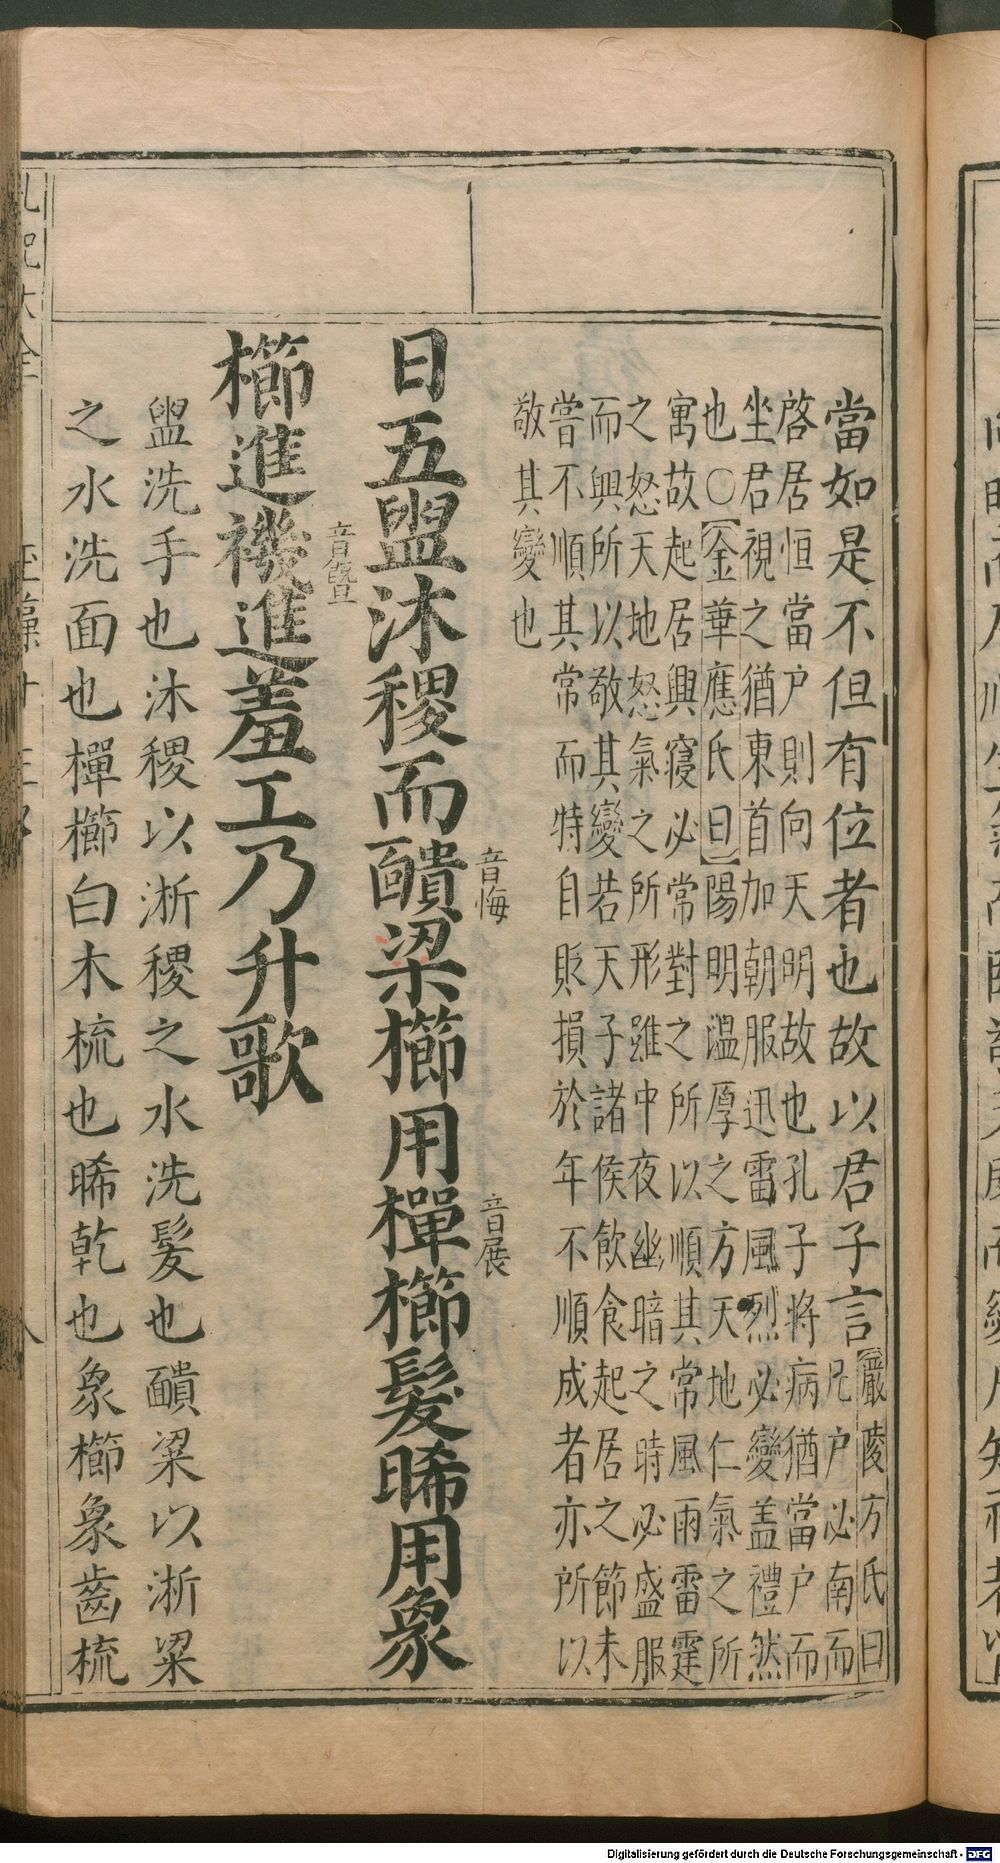 當如是不但有位者也故以君子言
嚴陵方氏曰
凡户必南而
啓居恒當户則向天明故也孔子將病猶當户而
坐君視之猶東首加朝服迅雷風烈必變盖禮然
也○金華應氏曰陽明溫厚之方天地仁氣之所
寓故起居興寢必常對之所以順其常風雨雷霆
之怒天地怒氣之所形雖中夜幽暗之時必盛服
而興所以敬其變若天子諸侯飲食起居之節未
嘗不順其常而特自貶損於年不順成者亦所以
敬其變也
日五盥沐稷而靧梁櫛用樿櫛髮晞用象
音悔
音展
櫛進禨進羞工乃升歌
音曁
盥洗手也沐稷以淅稷之水洗髮也靧粱以淅粱
之水洗面也樿櫛白木梳也晞乾也象櫛象齒梳
Digitalisierung gefördert durch die Deutsche Forschungsgemeinschaft - DFG